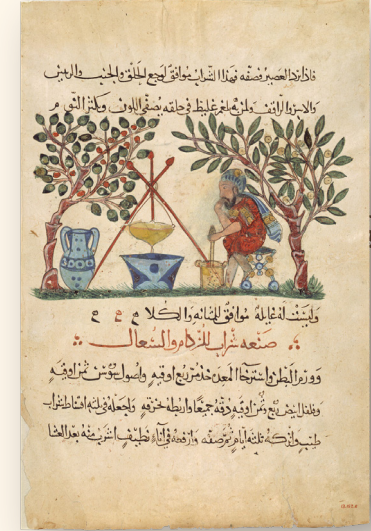 فاذا برد العصير فصفه فهذا الشراب موافق لوجع الحلق والجنب والرئتين
ولمن به بلغم غليظ في حلقه يصفي اللون ويكثر النوم
وليست له غايلة موافق للمثانه والكلا
صنعه شراب للزكام والسعال
وورم البطن واسترخا المعدة خذ مر ربع اوقيه واصول سوسن ثمن اوقيه
وفلفل ابيض ربع وثمن اوقيه دقه جميعا واربطه بخرقه واجعله في ثلثه اقساط شراب
طيب واتركه ثلثه ايام ثم صفه وارفعه في اناء نظيف اشرب منه بعد العشا